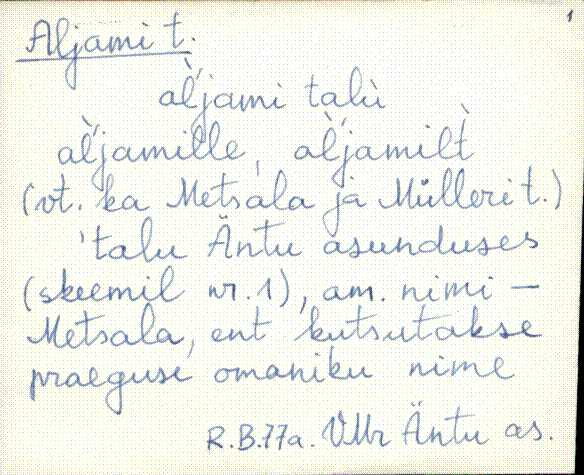 1
Aljami t.
àl'jami talù
àl'jamille, àl'jamilt̀
(vt. ka Metsala ja Mülleri t.)
'talu Äntu asunduses
(skeemil nr. 1), am. nimi –
Metsala, ent kutsutakse
praegusi omaniku nime
R.B.77a. VMr Äntu as.